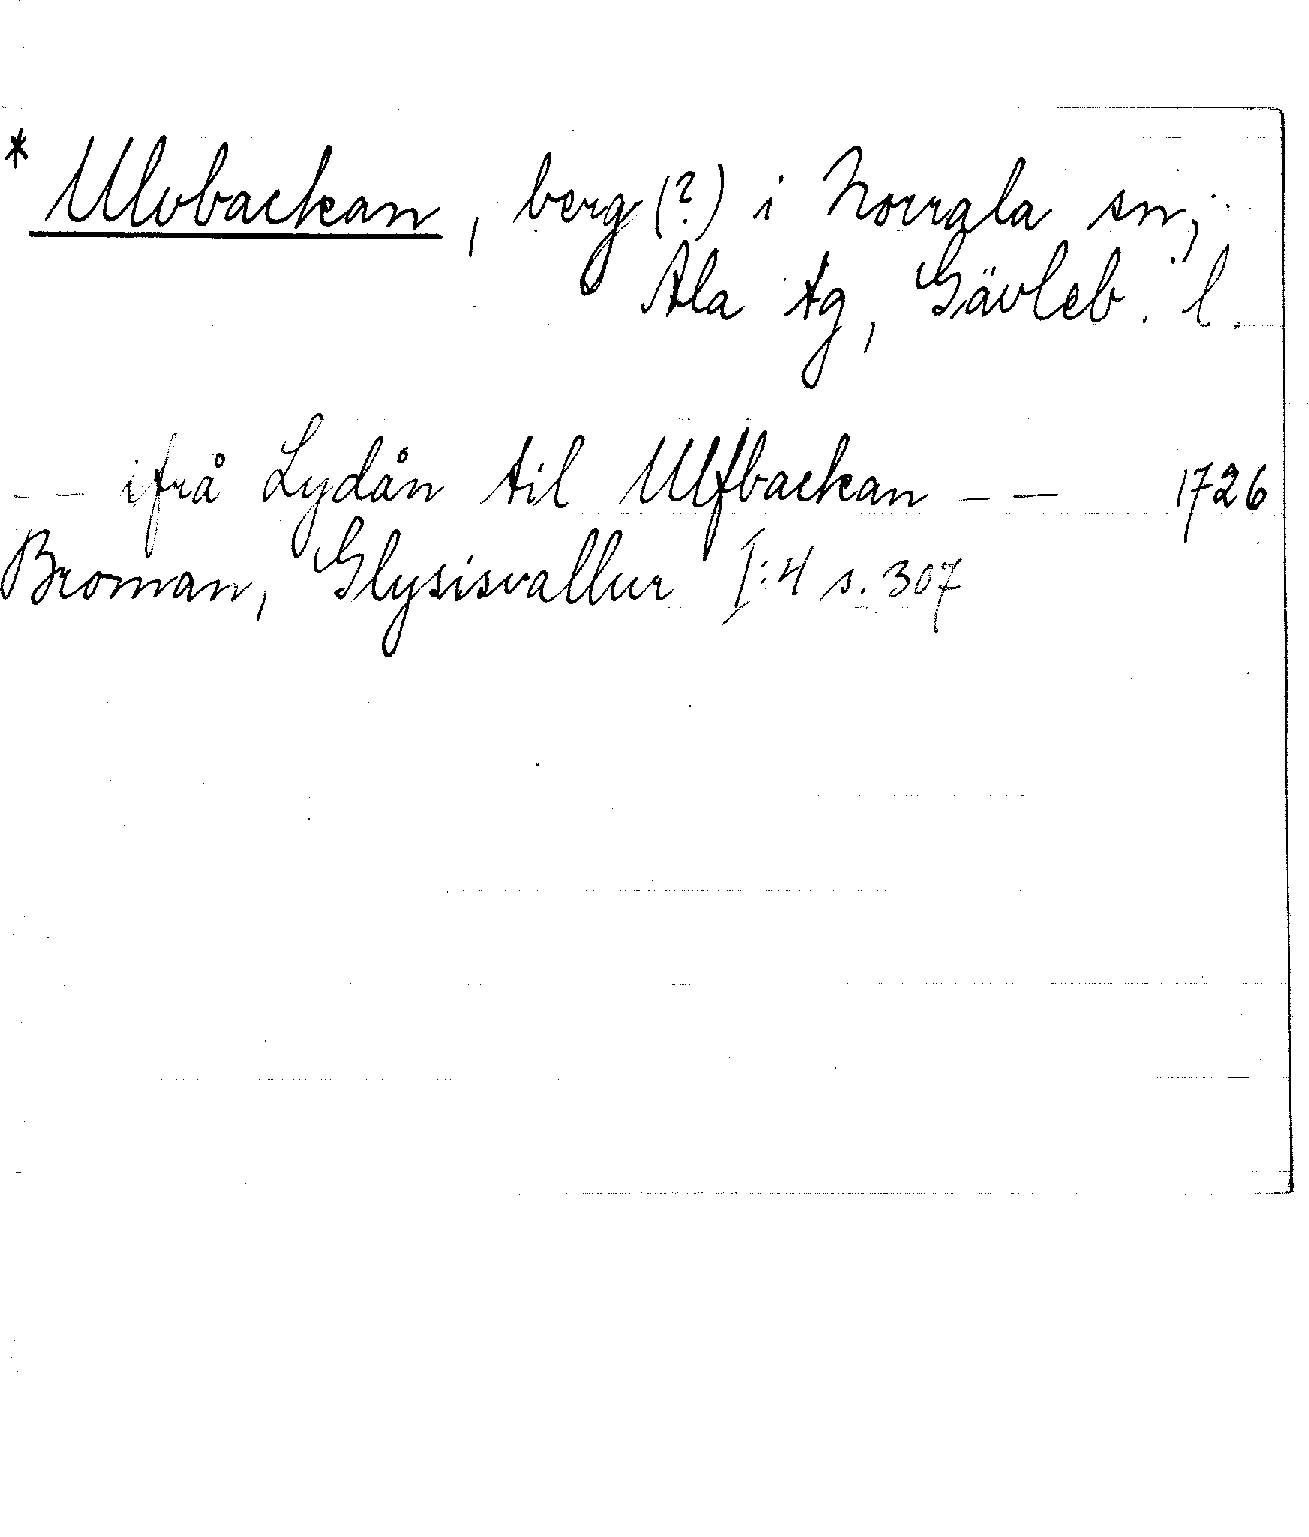 * Ulvbackan, berg (?) i Norrala sn,
Ala tg, Gävleb. l.
-- ifrå Lydån til Ulfbackan -- 1726
Broman, Glysisvallur I:4 s. 307